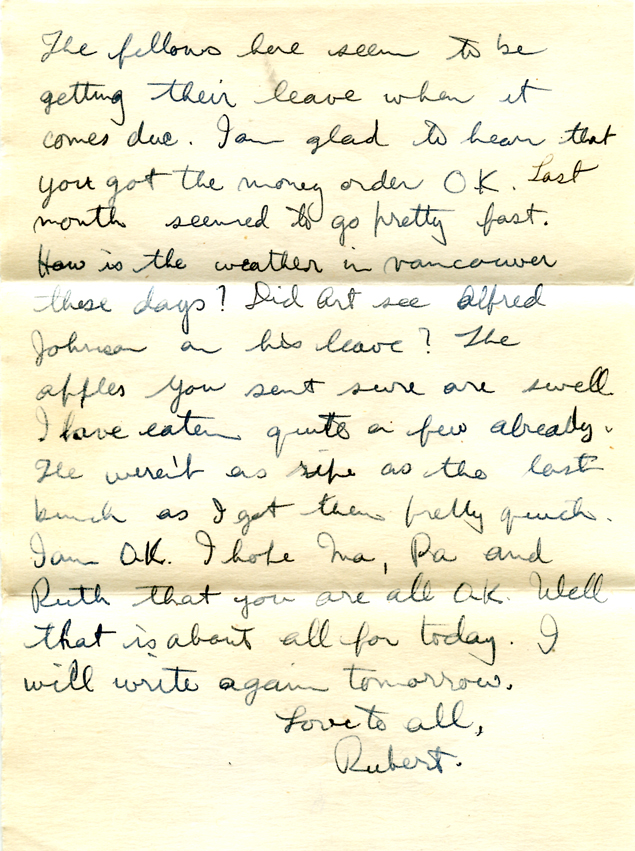 The fellows here seem to be
getting their leave when it
comes due. I am glad to hear that
you got the money order OK. Last
month seemed to go pretty fast.
How is the weather in Vancouver
these days? Did Art see Alfred
Johnson on his leave? The
apples you sent sure are swell.
I have eaten quite a few already.
The weren't as ripe as the last
bunch as I got them pretty quick.
I am OK. I hope Ma, Pa and
Ruth that you are all OK. Well
that is about all for today. I
will write again tomorrow.
Love to all,
Rubert.